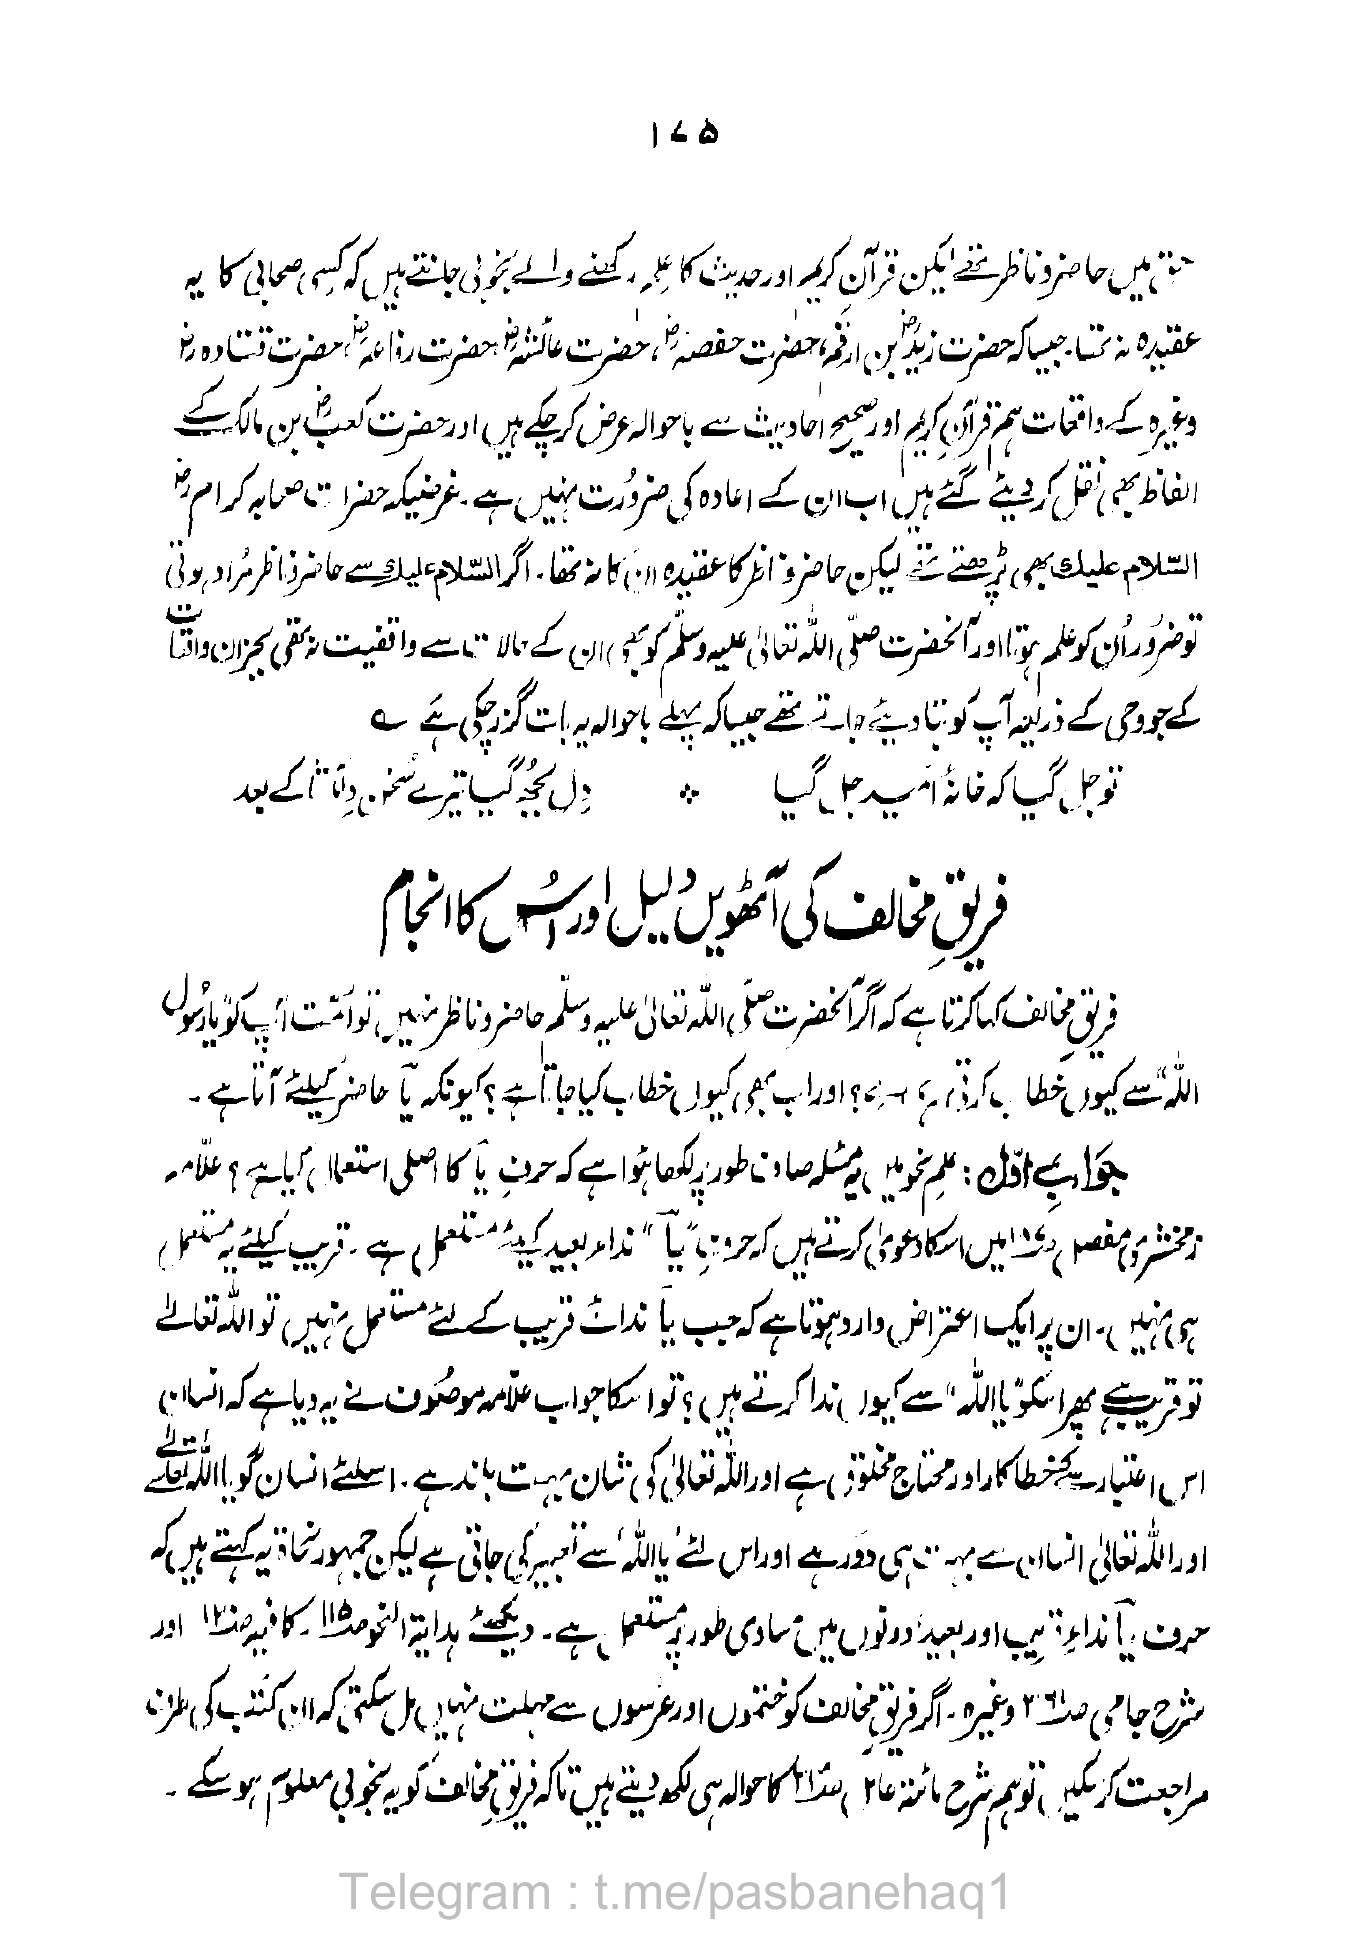 ۱۷۵
حق میں حاضر و ناظر تھے لیکن قرآن کریم اور حدیث کا علم رکھنے والے بخوبی جانتے ہیں کہ کسی صحابی کا یہ
عقیدہ نہ تھا۔ جیسا کہ حضرت زیدؓ بن ارقم، حضرت حفصہؓ، حضرت عائشہؓ، حضرت رفاعہؓ، حضرت قتادہؓ
وغیرہ کے واقعات ہم قرآن کریم اور صحیح احادیث سے باحوالہ عرض کر چکے ہیں اور حضرت کعبؓ بن مالک کے
الفاظ بھی نقل کر دیئے گئے ہیں اب ان کے اعادہ کی ضرورت نہیں ہے۔ غرضیکہ حضرات صحابہ کرامؓ
السّلام علیك بھی پڑھتے تھے لیکن حاضر و ناظر کا عقیدہ ان کا نہ تھا۔ اگر السّلام علیك سے حاضر و ناظر مُراد ہوتی
تو ضرور اُن کو علم ہوتا اور آنحضرت صلّی اللہ تعالیٰ علیہ وسلّم کو بھی ان کے حالات سے واقفیت نہ تھی بجز ان واقعات
کے جو وحی کے ذریعہ آپ کو بتا دیئے جاتے تھے جیسا کہ پہلے باحوالہ یہ بات گزر چکی ہے ؎
تو جل گیا کہ خانۂ اُمید جل گیا ؞ دِل بجھ گیا تیرے سُخن کے بعد
فریقِ مخالف کی آٹھویں دلیل اور اُس کا انجام
فریقِ مخالف کہا کرتا ہے کہ اگر آنحضرت صلّی اللہ تعالیٰ علیہ وسلّم حاضر و ناظر نہیں تو اُمّت آپ کو "یا رسُول
اللہ" سے کیوں خطاب کرتی رہی ہے؟ اور اب بھی کیوں خطاب کیا جاتا ہے؟ کیونکہ یَا حاضر کیلئے آتا ہے۔
جوابِ اوّل: علم نحو میں یہ مسئلہ صاف طور پر لکھا ہُوا ہے کہ حرفِ یَا کا اصلی استعمال کیا ہے؟ علّامہ
زمخشری مفصل میں اسکا دعویٰ کرتے ہیں کہ حرف "یَا" نداء بعید کیلئے مستعمل ہے۔ قریب کیلئے یہ مستعمل
ہی نہیں۔ ان پر ایک اعتراض وارد ہوتا ہے کہ جب یَا ندائے قریب کے لئے مستعمل نہیں تو اللہ تعالےٰ
تو قریب ہے پھر اسکو "یا اللہ" سے کیوں ندا کرتے ہیں؟ تو اسکا جواب علّامہ موصُوف نے یہ دیا ہے کہ انسان
اس اعتبار سے کہ خطا کار اور محتاج مخلوق ہے اور اللہ تعالیٰ کی شان بہت بلند ہے۔ اسلئے انسان گویا اللہ تعالےٰ سے
اور اللہ تعالیٰ انسان سے بہت ہی دور ہے اور اس لئے یا اللہ سے تعبیر کی جاتی ہے لیکن جمہور نحاۃ یہ کہتے ہیں کہ
حرف یَا نداءِ قریب اور بعید دونوں میں مساوی طور پر مستعمل ہے۔ دیکھئے ہدایۃ النحو صـ ۱۱۵، کافیہ اور
شرح جامی وغیرہ۔ اگر فریقِ مخالف کو ختموں اور عرسوں سے مہلت نہیں مل سکتی کہ ان کتب کی طرف
مراجعت کر سکیں تو ہم شرح مائتہ عامل کا حوالہ ہی لکھ دیتے ہیں تاکہ فریقِ مخالف کو یہ بخوبی معلوم ہو سکے۔
Telegram : t.me/pasbanehaq1